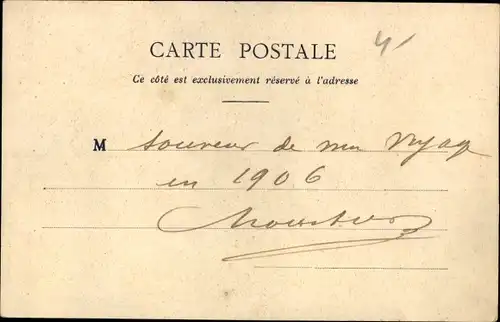 CARTE POSTALE
Ce côté est exclusivement réservé à l'adresse
M souvenir de mon voyage
en 1906